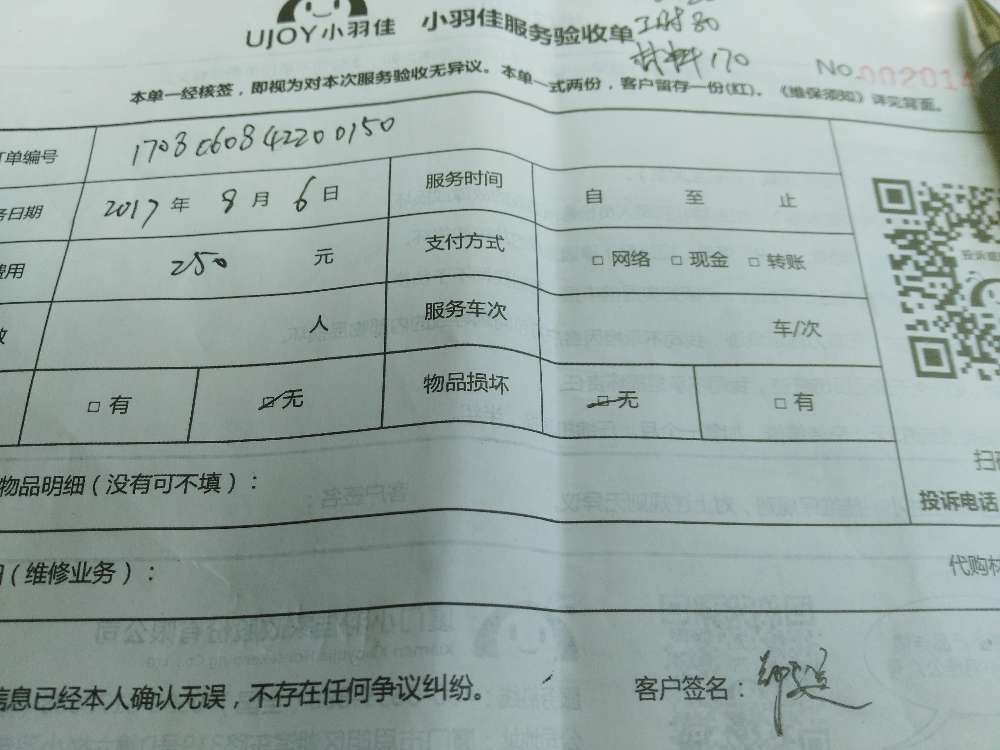 UJOY小羽佳 小羽佳服务验收单
工时80
材料170
No.
本单一经核签，即视为对本次服务验收无异议。本单一式两份，客户留存一份(红)。《维保须知》详见背面。
订单编号
务日期 2017年 8月 6日 服务时间 自 至 止
费用 250 元 支付方式 □ 网络 □ 现金 □ 转账
人 服务车次 车/次
□ 有 □ 无 物品损坏 □ 无 □ 有
物品明细（没有可不填）：
投诉电话
（维修业务）： 代购材
信息已经本人确认无误，不存在任何争议纠纷。 客户签名：